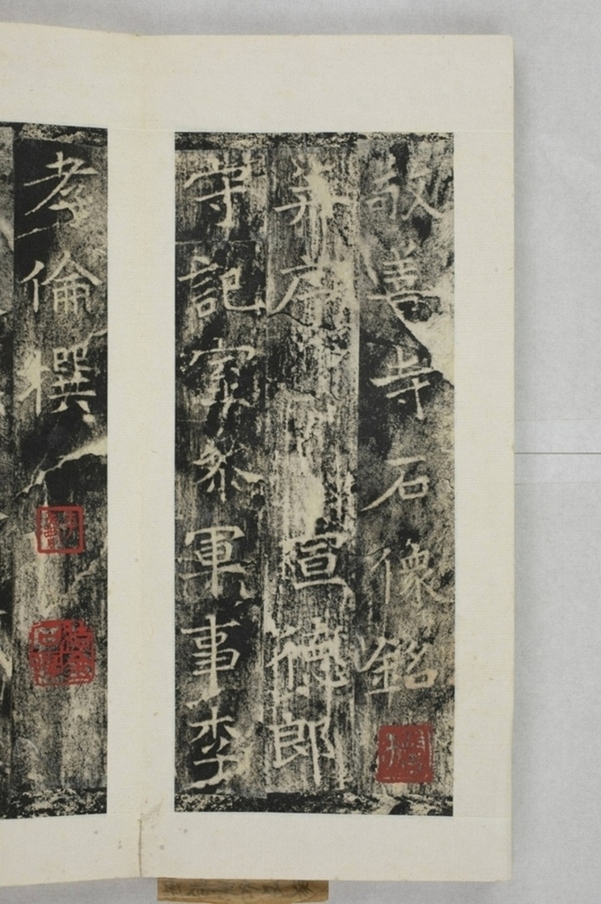 敬善寺石像銘
并序宣德郎
守記室叅軍事李
孝倫撰